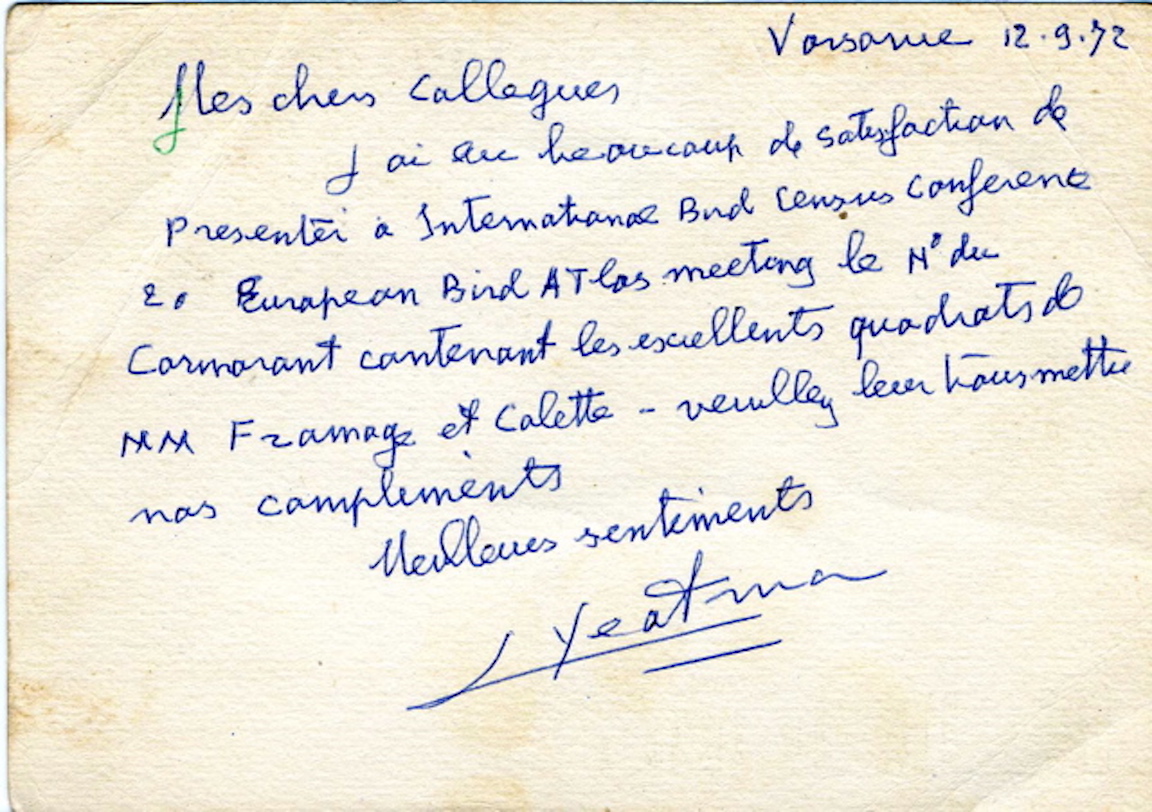 Varsovie 12.9.72
Mes chers Collegues
J ai eu beaucoup de satisfaction de
presenter à International Bird Census Conference
2o European Bird ATlas meeting le N° du
Cormorant contenant les excellents quadrats de
MM Framage et Colette - veuillez leur transmettre
nos compliments
Meilleurs sentiments
L Yeatman